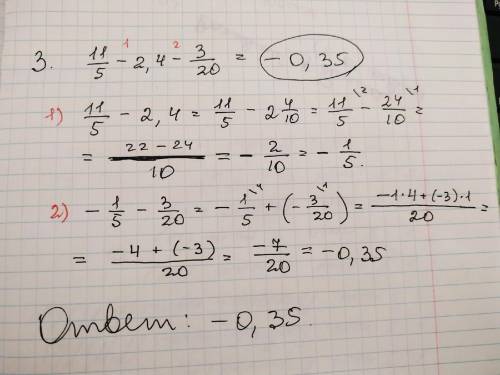 3. 11/5 - 2,4 - 3/20 = -0,35
1) 11/5 - 2,4 = 11/5 - 2 4/10 = 11/5\2 - 24/10\1 =
= 22-24/10 = - 2/10 = - 1/5.
2) - 1/5 - 3/20 = - 1/5\4 + (- 3/20\1) = -1·4+(-3)·1/20 =
= -4+(-3)/20 = -7/20 = -0,35
Ответ: -0,35.